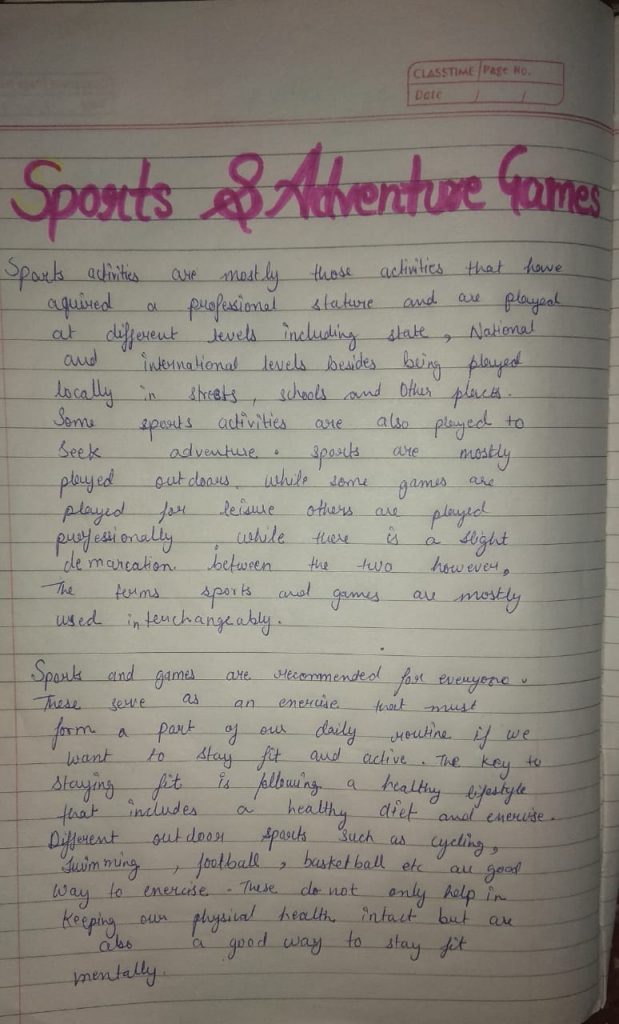 CLASSTIME Page No.
Date / /
Sports & Adventure Games
Sports activities are mostly those activities that have
aquired a professional stature and are played
at different levels including state, National
and international levels besides being played
locally in streets, schools and Other places.
Some sports activities are also played to
Seek adventure. sports are mostly
played outdoors. while some games are
played for leisure others are played
professionally. while there is a slight
demarcation. between the two however,
The terms sports and games are mostly
used interchangeably.
Sports and games are recommended for everyone.
These serve as an exercise that must
form a part of our daily routine if we
want to stay fit and active. The key to
staying fit is following a healthy lifestyle
that includes a healthy diet and exercise.
Different outdoor sports such as cycling,
swimming, football, basketball etc are good
way to exercise. These do not only help in
keeping our physical health intact but are
also a good way to stay fit
mentally.